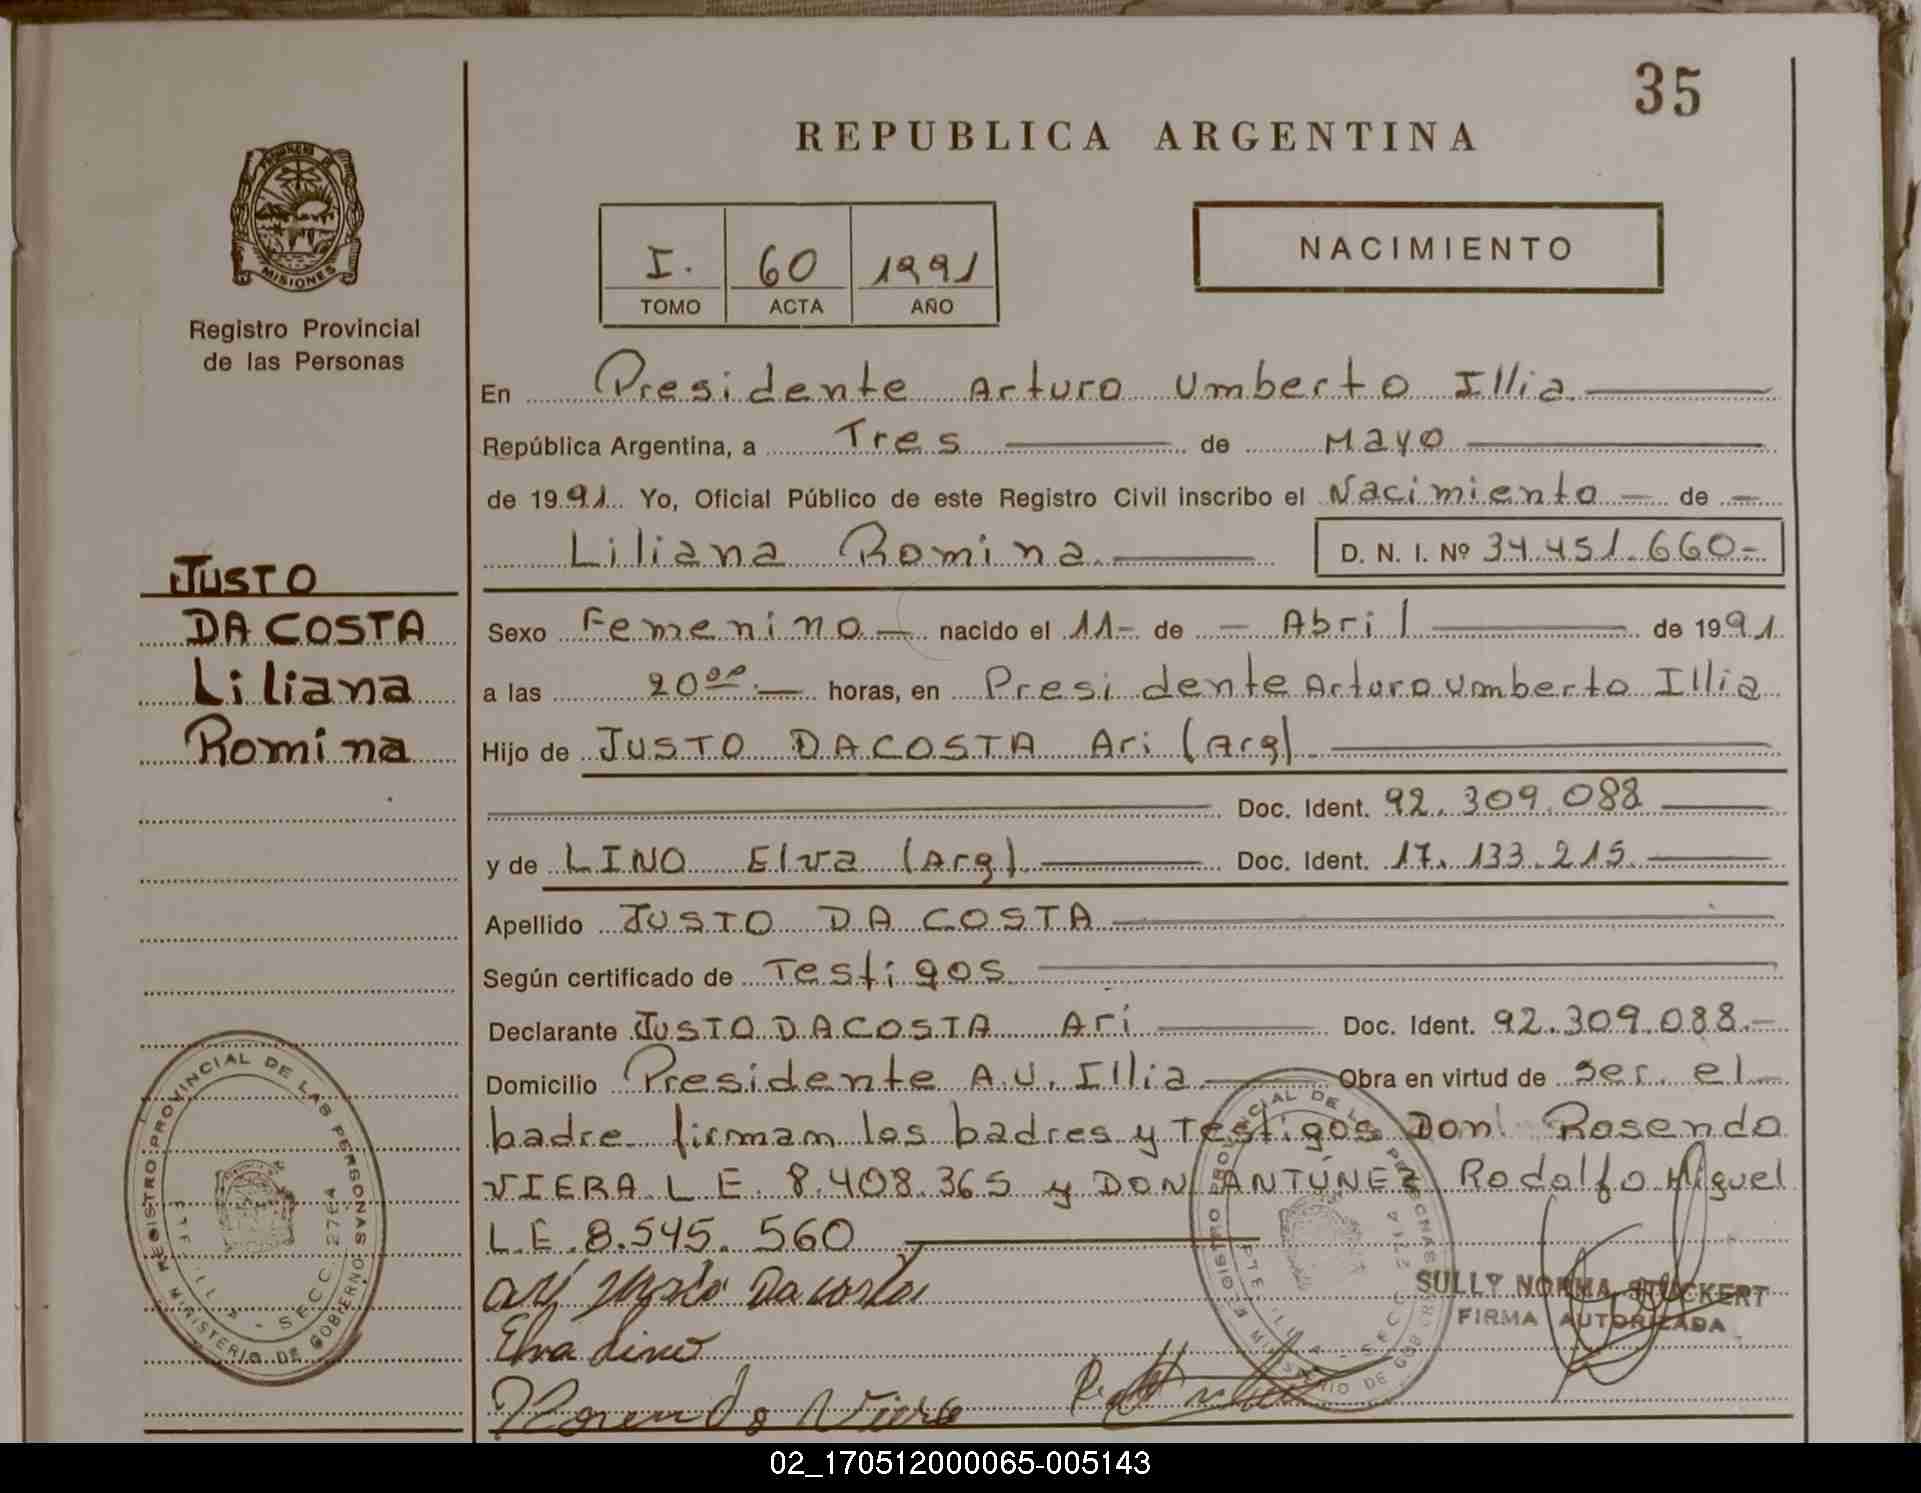 35
REPUBLICA ARGENTINA
PROVINCIA DE
MISIONES
Registro Provincial
de las Personas
I. 60 1991
TOMO ACTA AÑO
NACIMIENTO
En Presidente Arturo Umberto Illia
República Argentina, a Tres de Mayo
de 1991 Yo, Oficial Público de este Registro Civil inscribo el Nacimiento de
Liliana Romina D. N. I. Nº 34.451.660
JUSTO
DA COSTA
Liliana
Romina
Sexo Femenino nacido el 11 de Abril de 1991
a las 20 00 horas, en Presidente Arturo Umberto Illia
Hijo de JUSTO DA COSTA Ari (Arg)
Doc. Ident. 92.309.088
y de LINO Elva (Arg) Doc. Ident. 17.133.215
Apellido JUSTO DA COSTA
Según certificado de Testigos
Declarante JUSTO DA COSTA Ari Doc. Ident. 92.309.088.
Domicilio Presidente A.U. Illia Obra en virtud de ser el
padre firman los padres y Testigos Don Rosendo
VIERA L E. 8.408.365 y DON ANTÚNEZ Rodolfo Miguel
L.E. 8.545.560
Ari Justo Da costa
Elva Lino
Rosendo Viera
SULLY NORMA STUCKERT
FIRMA AUTORIZADA
REGISTRO PROVINCIAL DE LAS PERSONAS
MINISTERIO DE GOBIERNO
PTE. ILLIA - SECC. 2764
REGISTRO PROVINCIAL DE LAS PERSONAS
MINISTERIO DE GOB
PTE. ILLIA - SECC 2764
02_170512000065-005143